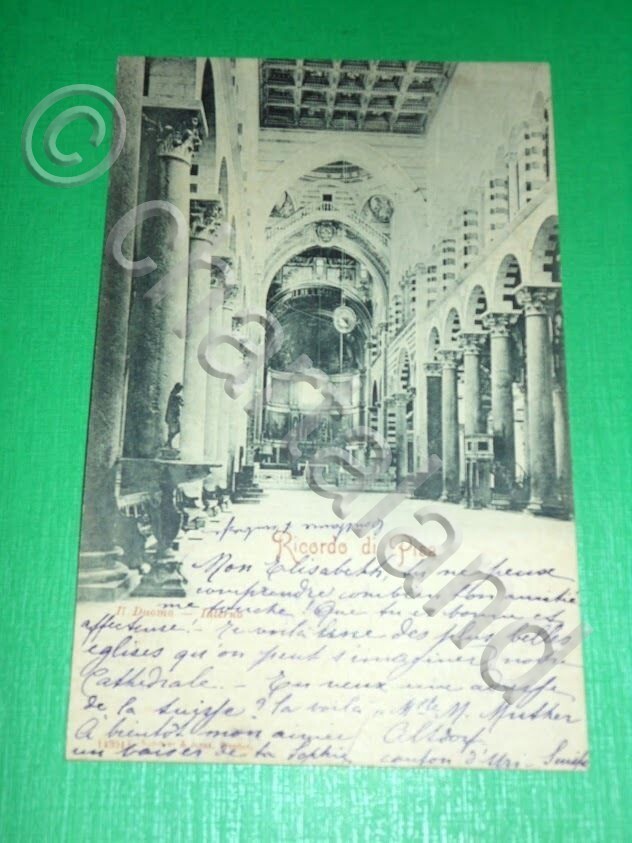 © chartaland
Ricordo di Pisa
Mon Elisabeth, tu ne peux
comprendre combien ton amitié
Il Duomo - Interno
me touche! Que tu es bonne et
affectueuse! - Te voilà une des plus belles
églises qu'on peut s'imaginer, notre
Cathédrale. - En veux une aussi
de la Suisse? la voilà, Mlle M. Muther
À bientôt mon Altdorf
un baiser de ta Sophie canton d'Uri - Suisse